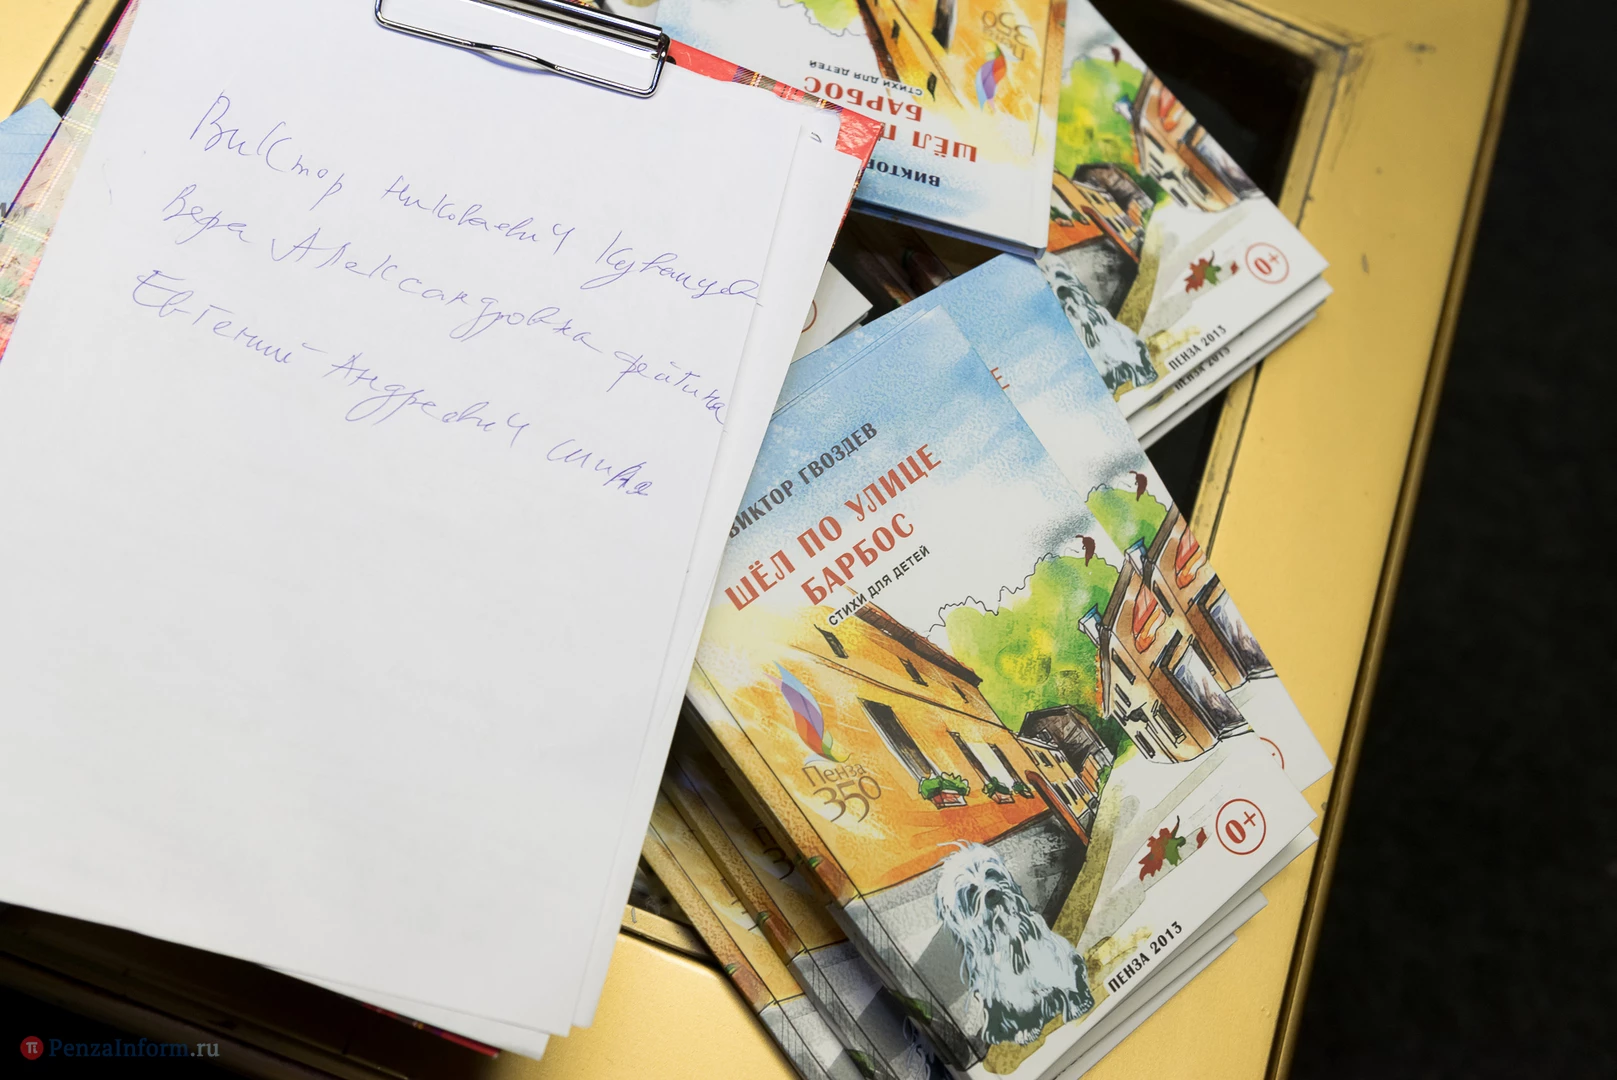 Виктор Николаевич Кувайцев
Вера Александровна Фейгина
Евгений Андреевич Шиля
ВИКТОР
ШЁЛ П
БАРБОС
СТИХИ ДЛЯ ДЕТЕЙ
Пенза
350
0+
ПЕНЗА 2013
ПЕНЗА 2013
Е
ВИКТОР ГВОЗДЕВ
ШЁЛ ПО УЛИЦЕ
БАРБОС
СТИХИ ДЛЯ ДЕТЕЙ
Пенза
350
0+
ПЕНЗА 2013
PenzaInform.ru